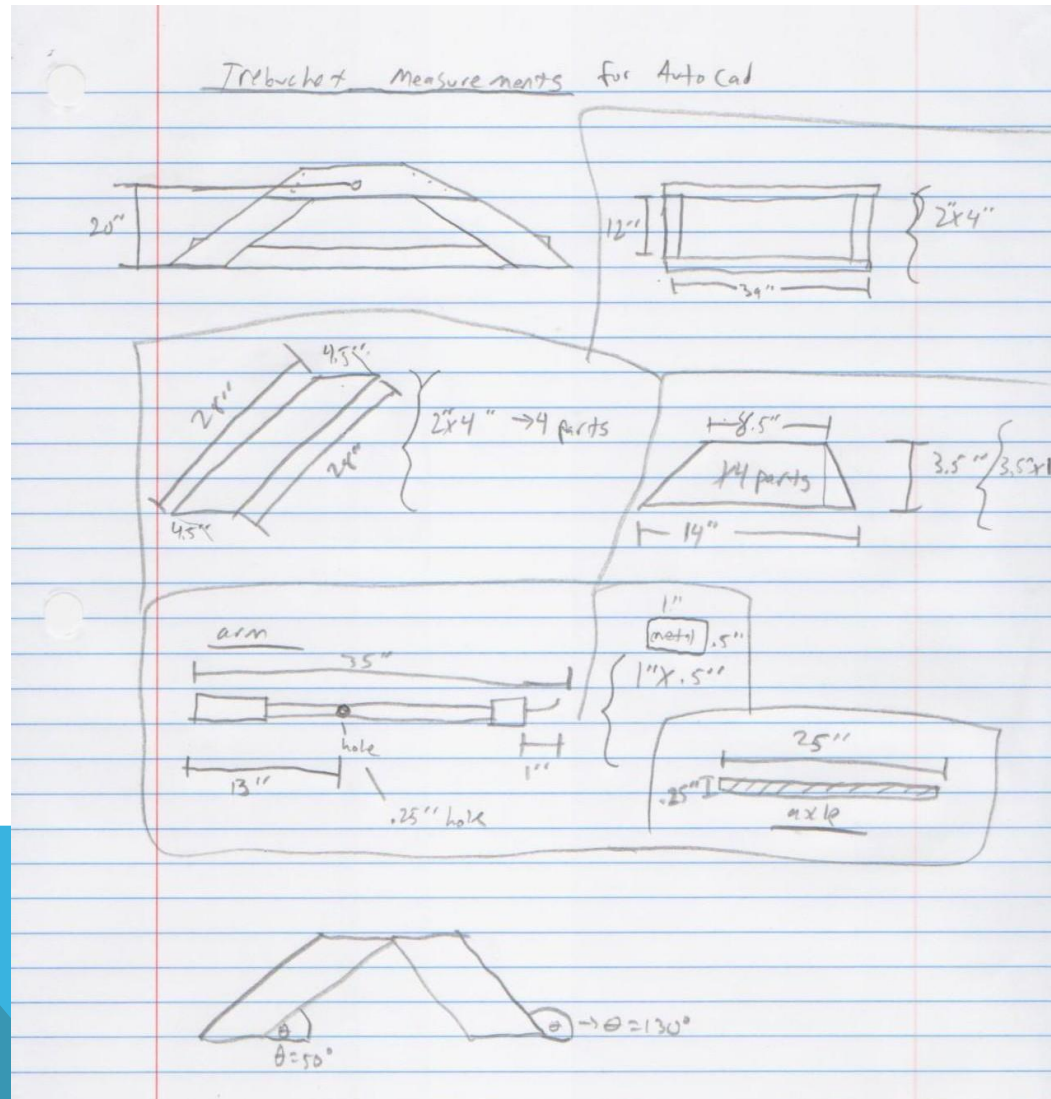 Trebuchet Measurements for AutoCad
20"
12"
2"x4"
39"
4.5"
28"
28"
4.5"
2"x4" → 4 parts
8.5"
x4 parts
3.5"
14"
arm
35"
hole
13"
.25" hole
1"
1"
metal
.5"
1"x.5"
25"
.25"
axle
θ
θ=50°
θ → θ=130°